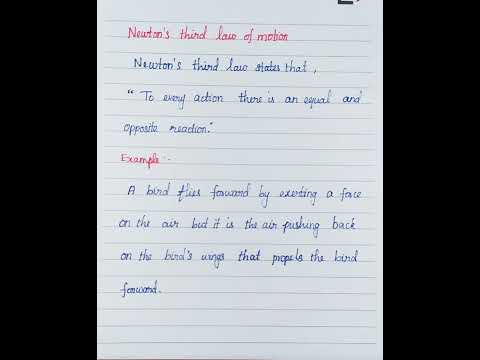 Newton's third law of motion
Newton's third law states that,
"To every action there is an equal and
opposite reaction."
Example :-
A bird flies forward by exerting a force
on the air but it is the air pushing back
on the bird's wings that propels the bird
forward.